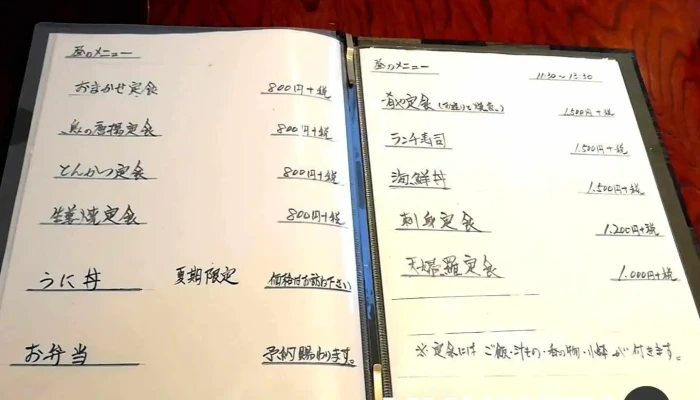 昼のメニュー
おまかせ定食 800円+税
魚の唐揚定食 800円+税
とんかつ定食 800円+税
生姜焼定食 800円+税
うに丼 夏期限定 価格はお訪ね下さい
お弁当 予約賜わります。
昼のメニュー 11:30～13:30
定食 1,500円+税
ランチ寿司 1,500円+税
海鮮丼 1,500円+税
刺身定食 1,200円+税
天婦羅定食 1,000円+税
※定食には ご飯・汁もの・香の物・小鉢 が付きます。